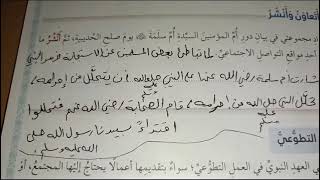 أتعاون وأنشر
مجموعتي في بيان دور أم المؤمنين السيدة أم سلمة ﷺ يوم صلح الحديبية، ثم أنشر
أحد مواقع التواصل الاجتماعي.
لما تباطأ بعض المسلمين عن الاستجابة لأمر النبي
أشارت أم سلمة رضي الله عنها على النبي صلى الله أن يتحلل من إحرامه
تحلل النبي صلى الله عليه وسلم من إحرامه، قام الصحابة رضي الله عنهم فتحللوا
اقتداءً بسيدنا رسول الله صلى
الله عليه وسلم
التطوعي
العهد النبوي في العمل التطوعي؛ سواء بتقديمها أعمالا يحتاج إليها المجتمع، أو